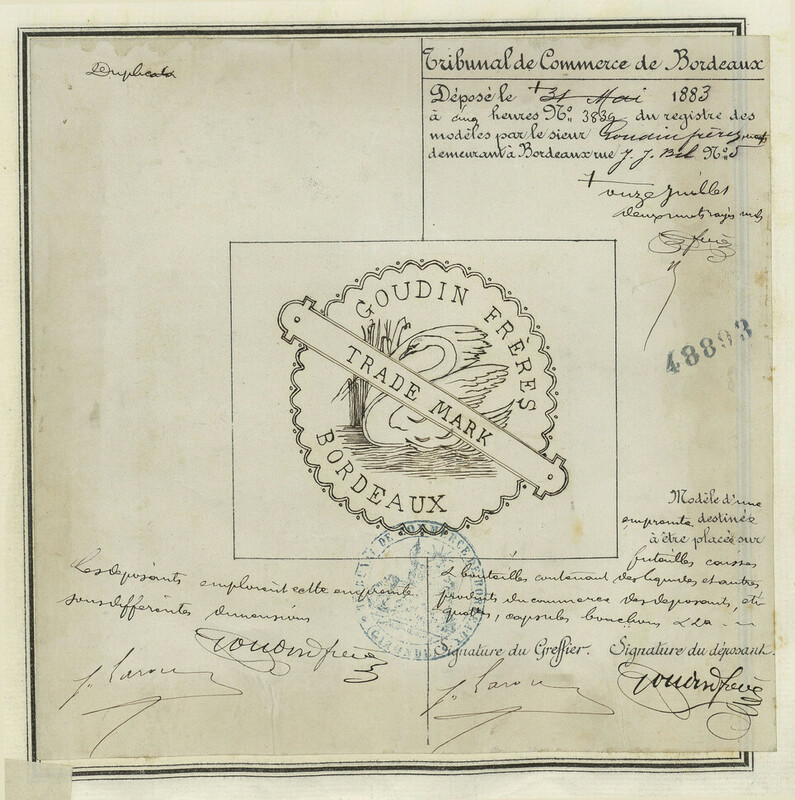 Duplicata
Tribunal de Commerce de Bordeaux
Déposé le + 31 Mai 1883
à cinq heures No. 3839 du registre des
modèles par le sieur Goudin frères
demeurant à Bordeaux rue J. J. Bel No. 5
+ onze Juillet
deux mots rayés nuls
48893
GOUDIN FRÈRES
TRADE MARK
BORDEAUX
Modèle d'une
empreinte destinée
à être placée sur
futailles caisses
& bouteilles contenant des liquides et autres
produits du commerce des déposants, éti
quettes, capsules bouchons &a
Les déposants emploient cette empreinte
sous différentes dimensions
TRIBUNAL DE COMMERCE DE BORDEAUX
(GIRONDE)
Goudin frères
Signature du Greffier. Signature du déposant.
Goudin frères